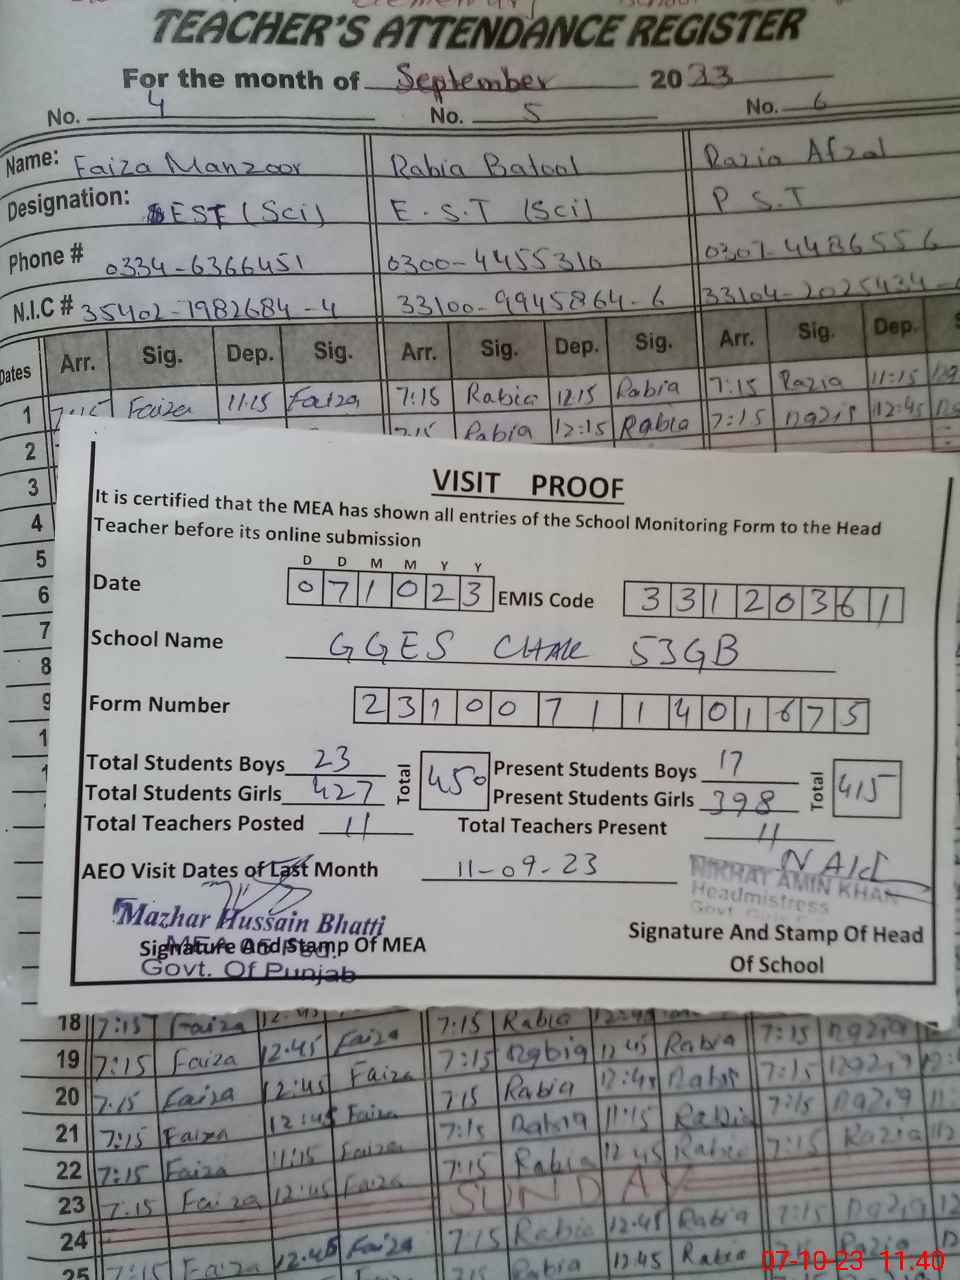 TEACHER'S ATTENDANCE REGISTER
For the month of September 2023
No. 4 No. 5 No. 6
Name: Faiza Manzoor Rabia Batool Razia Afzal
Designation: EST (Sci) E.S.T (Sci) P S.T
Phone # 0334-6366451 0300-4455310 0307-4486556
N.I.C # 35402-7982684-4 33100-9945864-6 33104-2025434-
Dates Arr. Sig. Dep. Sig. Arr. Sig. Dep. Sig. Arr. Sig. Dep. S
1 7:15 Faiza 11:15 Faiza 7:15 Rabia 12:15 Rabia 7:15 Razia 11:15
2 7:15 Rabia 12:15 Rabia 7:15 Razia 12:45
3
4
5
6
7
8
9
1
VISIT PROOF
It is certified that the MEA has shown all entries of the School Monitoring Form to the Head
Teacher before its online submission
D D M M Y Y
Date 071023 EMIS Code 33120361
School Name GGES CHAK 53GB
Form Number 23100711401675
Total Students Boys 23 Total 450 Present Students Boys 17 Total 415
Total Students Girls 427 Present Students Girls 398
Total Teachers Posted 11 Total Teachers Present 11
AEO Visit Dates of Last Month 11-09-23
NIKHAT AMIN KHAN
Headmistress
Mazhar Hussain Bhatti
Signature And Stamp Of MEA
Govt. Of Punjab
Signature And Stamp Of Head
Of School
18 7:15 Faiza 12:45 7:15 Rabia 12:45 7:15 Razia
19 7:15 Faiza 12:45 Faiza 7:15 Rabia 12 45 Rabia 7:15 Razia 12:
20 7:15 Faiza 12:45 Faiza 7:15 Rabia 12:45 Rabia 7:15 Razia 11:
21 7:15 Faiza 12:45 Faiza 7:15 Rabia 11:15 Rabia 7:15 Razia 12
22 7:15 Faiza 11:15 Faiza 7:15 Rabia 12 45 Rabia 7:15 Razia 12
23 7:15 Faiza 12:45 Faiza SUNDAY
24 7:15 Rabia 12:45 Rabia 7:15 Razia 12
25 7:15 Faiza 12:45 Faiza 7:15 Rabia 12:45 Rabia 7:15 Razia 12
07-10-23 11:40